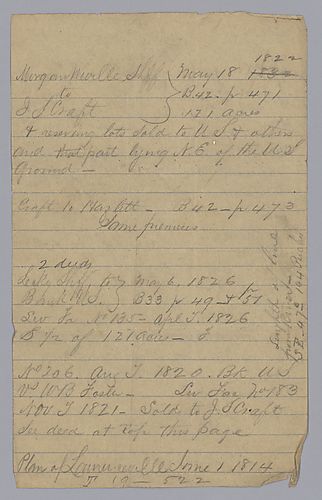 1822
Morgan Neville Shff May 18 1832
to B42. p 471
J S Craft 121 acres
& reserving lots sold to U.S. & others
and that part lying N.E of the U.S
Ground —
Craft to Hazlett — B42 — p 473
Same premises
2 deeds
Shff to May 6, 1826
Bank U.S. B33 p 49 & 51
No 135 — Apl T. 1826
S 1/2 of 121 acres —
No 206. Aug T. 1820. Bk U S
Vs W B Foster — No 183
Nov T 1821 — Sold to J S Craft
See deed at top this page
Plan of Lawrenceville June 1 1814
19 — 522